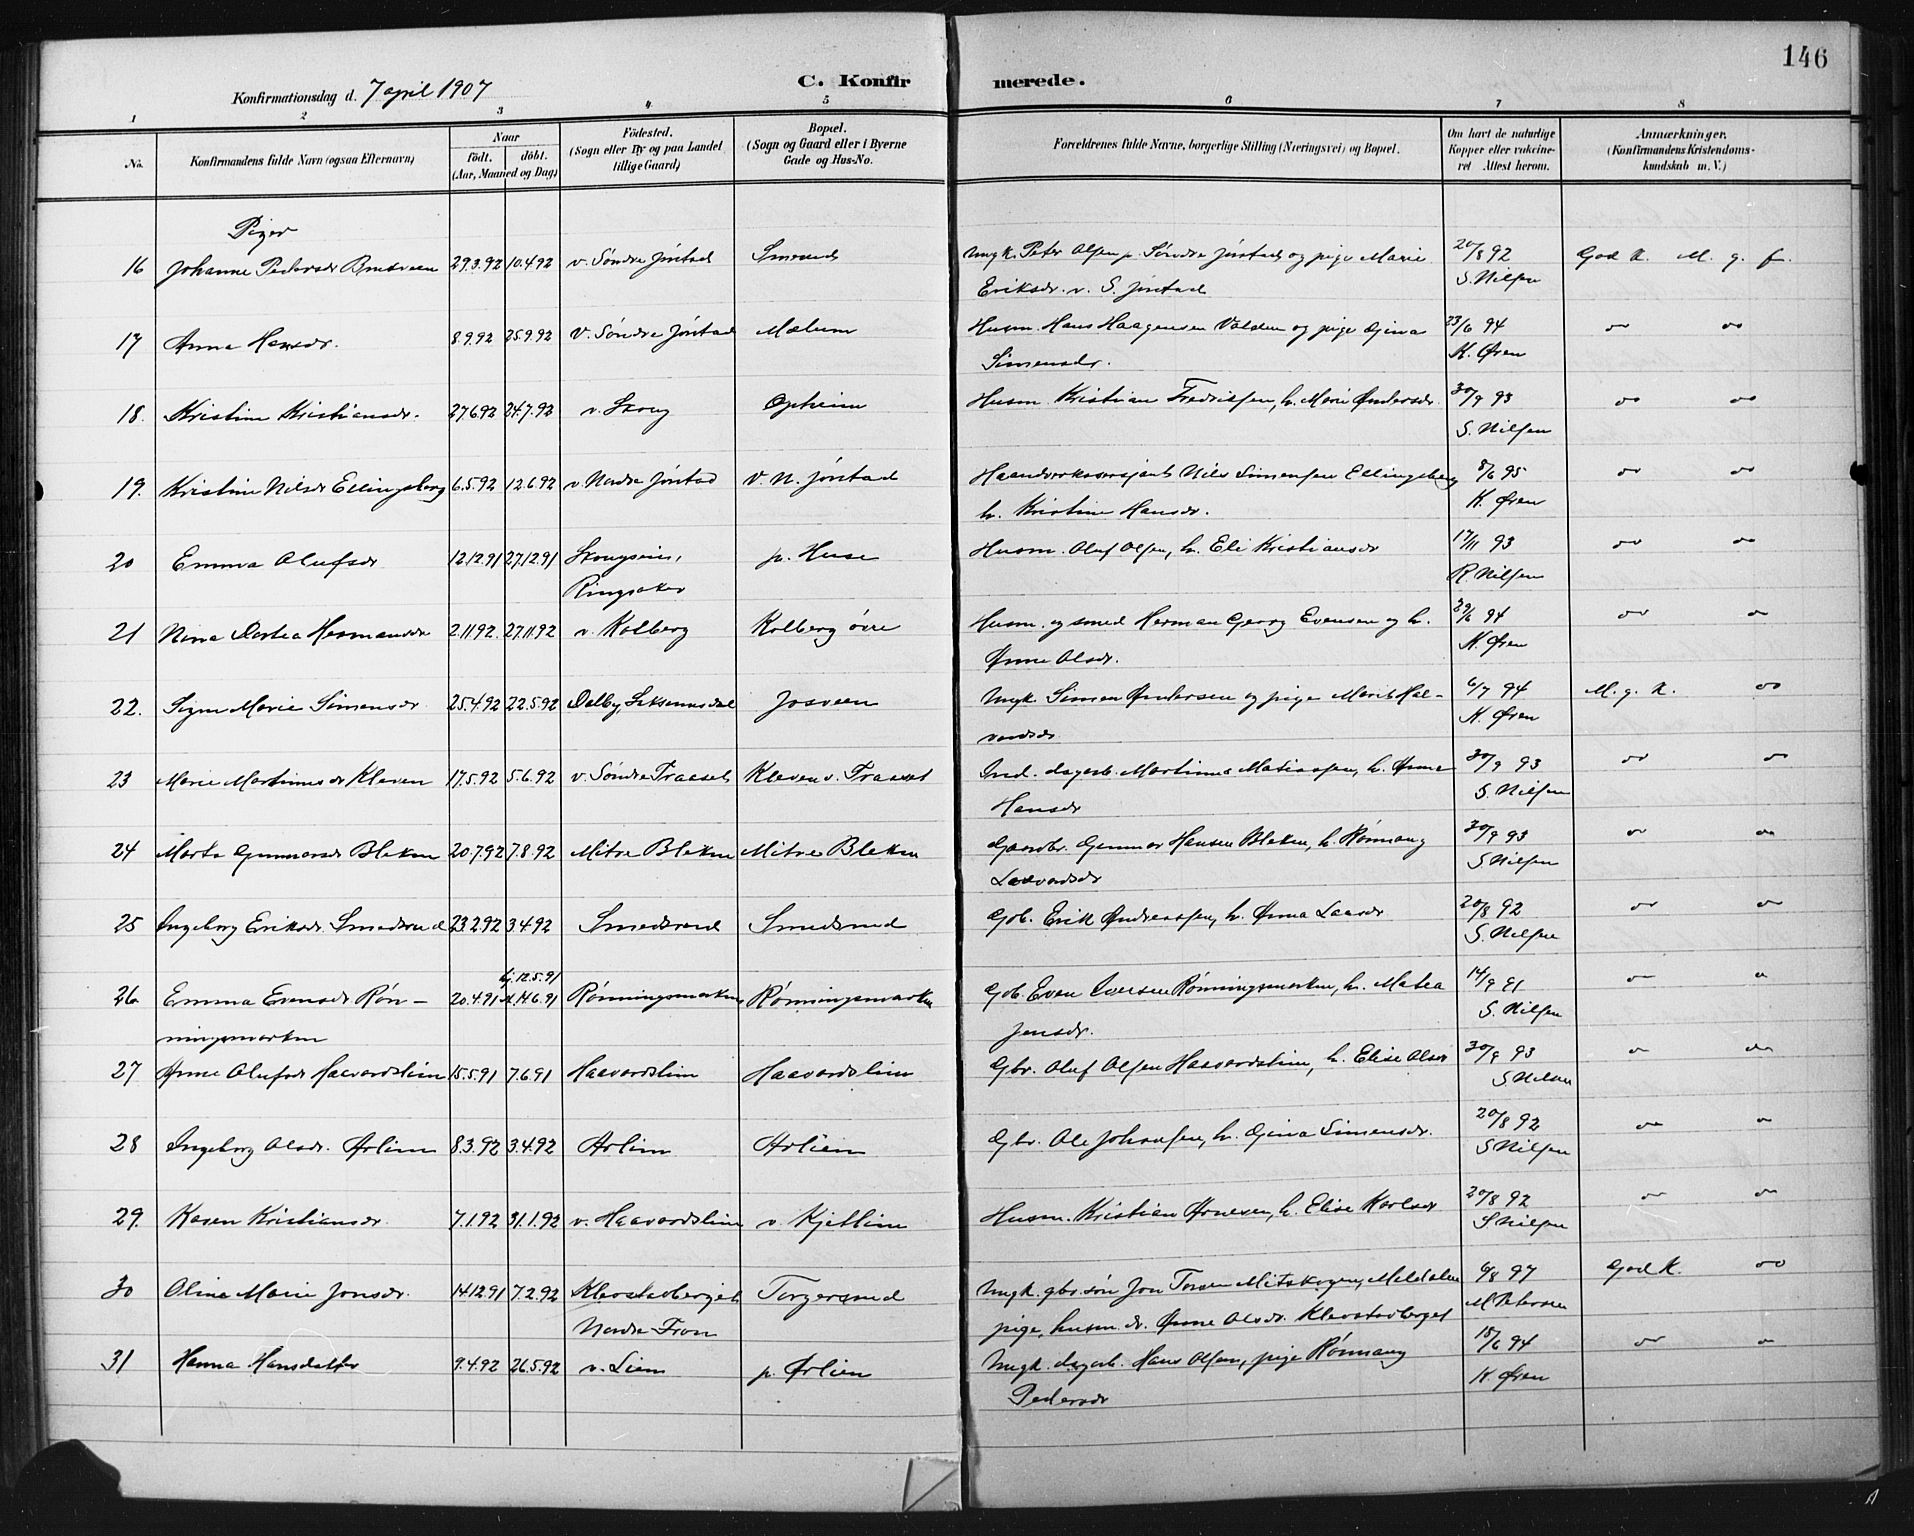 146
Konfirmationsdag d. 7 april 1907
C. Konfirmerede.
1 2 3 4 5 6 7 8
No. Konfirmandens fulde Navn (ogsaa Efternavn) Naar födt. döbt. (Aar, Maaned og Dag) Födested. (Sogn eller By og paa Landet tillige Gaard) Bopæl. (Sogn og Gaard eller i Byerne Gade og Hus-No. Forældrenes fulde Navne, borgerlige Stilling (Næringsvei) og Bopæl. Om havt de naturlige Kopper eller vakcineret Attest herom. Anmærkninger. (Konfirmandens Kristendomskundskab m. V.)
Piger
16 Johanne Pedersdr 29.3.92 10.4.92 v. Söndre Jörstad Smerud Ungk. Peter Olsen p. Söndre Jörstad og pige Marie 20/8 92 God K. M. g. f.
Eriksdr. v. S. Jörstad S. Nilsen
17 Anna Hansdr. 8.9.92 25.9.92 v. Söndre Jörstad Mælum Husm. Hans Haagensen Volden og pige Gina 23/6 94 " "
Simensdr. K. Øren
18. Kristine Kristiansdr. 27.6.92 24.7.92 v. Skoug Opheim Husm. Kristian Fredriksen, h. Marie Andersdr. 30/9 93 " "
S. Nilsen
19. Kristine Nilsdr Ellingsberg 6.5.92 12.6.92 v. Nordre Jörstad v. N. Jörstad Nils Simensen Ellingsberg 8/6 95 " "
h. Kristine Hansdr. K. Øren
20 Emma Olufsdr 12.12.91 27.12.91 p. Huse Husm. Oluf Olsen, h. Eli Kristiansdr 17/11 93 " "
Ringsaker R. Nilsen
21 Nina Dortea Hermansdr 2.11.92. 27.11.92 v. Kolberg Kolberg övre Husm. og smed Herman Georg Evensen og h. 29/6 94 " "
Anne Olsdr. K. Øren
22. Marie Simensdr 25.4.92 22.5.92 Dalby, Josveen Ungk. Simen Andersen og pige Marit Hal- 6/7 94 M. g. K. "
vorsdr K. Øren
23 Marie Martinusdr Kleven 17.5.92 5.6.92 v. Söndre Traaset Kleven v. Traaset Ind. dagarb. Martinus Matiassen, h. Anne 30/9 93 " "
Hansdr S. Nilsen
24 Marte Gunnarsdr Bleken 20.7.92 7.8.92 Mitre Bleken Mitre Bleken Gaardbr. Gunnar Hansen Bleken, h. Rønnaug 30/9 93 " "
S Nilsen
25 Ingeborg Eriksdr. Smedsrud 23.2.92 3.4.92 Smedsrud Smedsrud Gb. Erik Andreassen, h. Anna Larsdr 20/8 92 " "
S. Nilsen
hj. 12.5.91
26 Emma Evensdr Rön- 20.4.91 k. 14.6.91 Rönningsmarken Rönningsmarken Gb. Even Iversen Rönningsmarken, h. Matea 14/9 91 " "
ningsmarken Jensdr. S. Nilsen
27 Anne Olufsdr Haavardslien 15.5.91 7.6.91 Haavardslien Haavardslien Gbr. Oluf Olsen Haavardslien, h. Elise Olsdr 30/9 93 " "
S Nilsen
28 Ingeborg Olsdr. Arlien 8.3.92 3.4.92 Arlien Arlien Gbr. Ole Johansen, h. Gina Simensdr. 20/8 92 " "
S Nilsen
29. Karen Kristiansdr. 7.1.92 31.1.92 v. Haavardslien v. Kjetlien Husm. Kristian Arnesen, h. Elise Karlsdr 20/8 92 " "
S Nilsen
30 Oline Marie Jonsdr. 14.12.91 7.2.92 Klevstadberget Torgersrud Ungk. gbr. sön Jon Torsen Mitskogen, Meldalen 6/8 97 God K. "
Nordre Fron pige, husm. dr. Anne Olsdr. Klevstadberget M Petersen
31 Hanna Hansdatter 9.4.92 26.5.92 v. Lien p. Arlien Ungk. dagarb. Hans Olsen, pige Rönnaug 15/6 94 " "
Pedersdr K. Øren